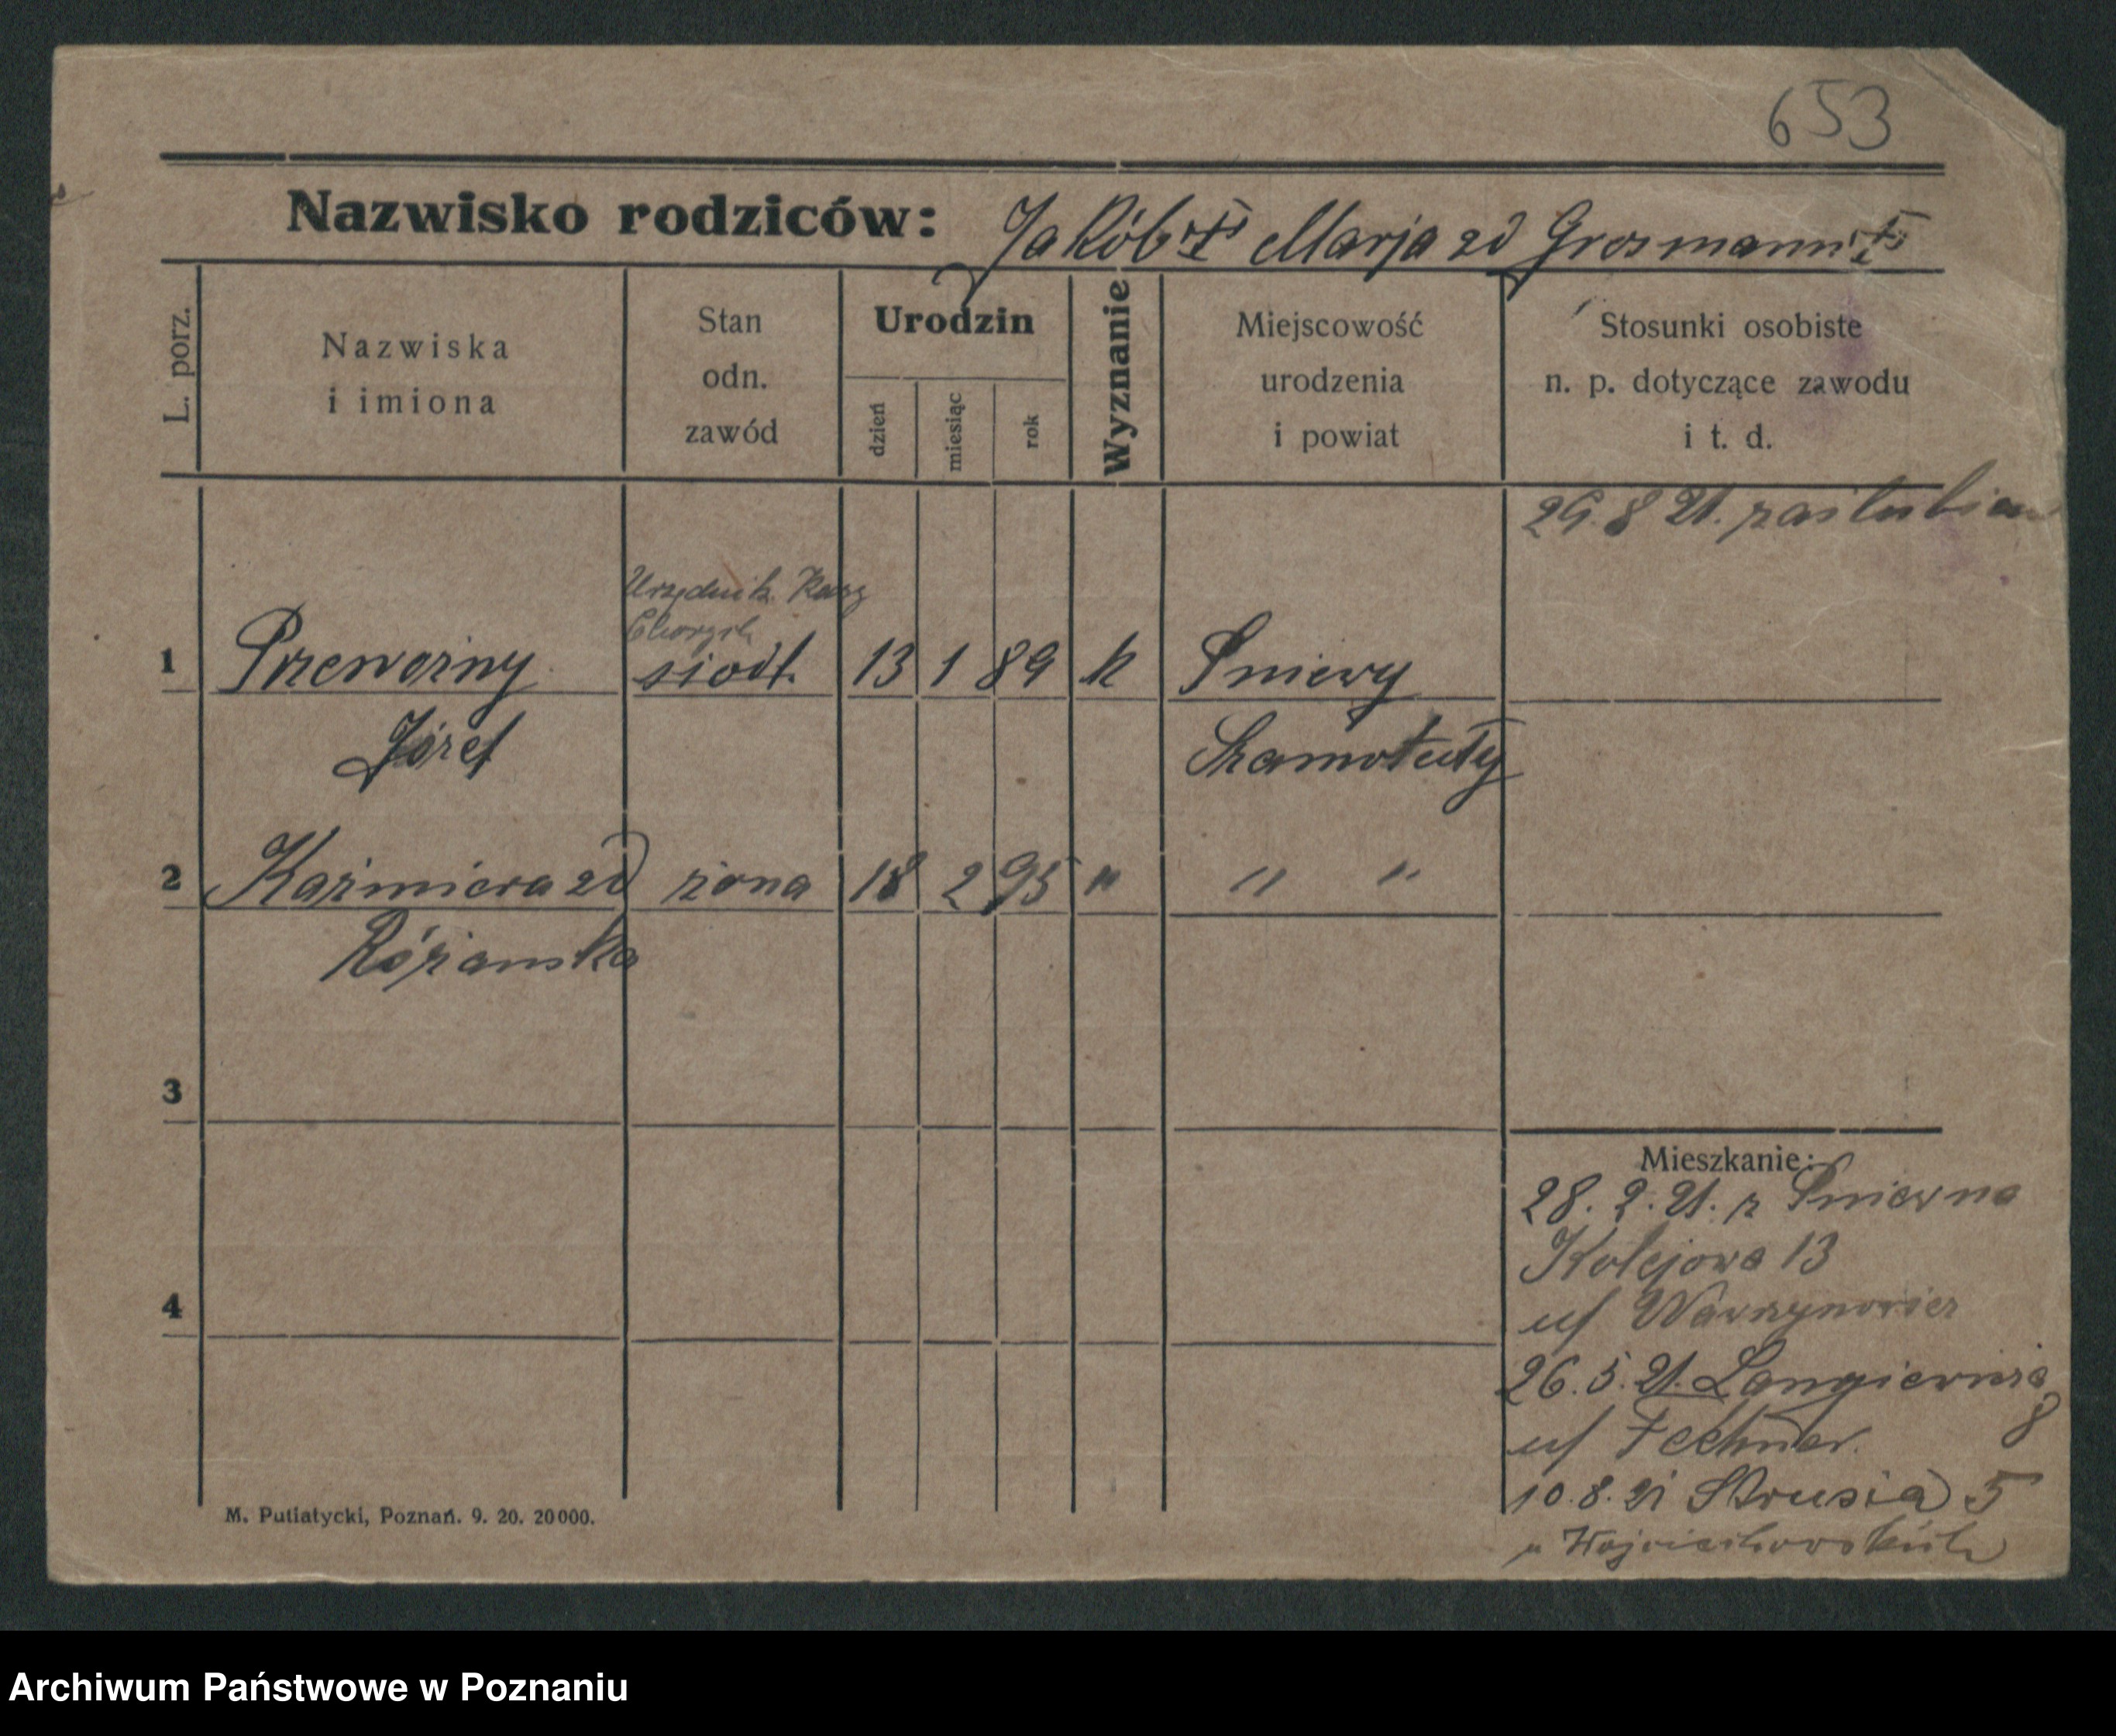 653
Nazwisko rodziców: Jakób Marja zd Grosmann
L. porz.
Nazwiska
i imiona
Stan
odn.
zawód
Urodzin
dzień
miesiąc
rok
Wyznanie
Miejscowość
urodzenia
i powiat
Stosunki osobiste
n. p. dotyczące zawodu
i t. d.
29.8 21.
Urzędnik Kasy
Chorych
1 Prewoźny siodł. 13 1 89 k Pniewy
Józef Szamotuły
2 Kaźmiera zd żona 18 2 95 " " "
Różanska
3
4
Mieszkanie:
28. 2. 21. z Pniew na
Kolejowa 13
u/ Wawrzynowicz
26. 5. 21. Langiewicza
8
u/ Fechner.
10. 8. 21 Strusia 5
u Wojciechowskich
M. Putiatycki, Poznań. 9. 20. 20000.
Archiwum Państwowe w Poznaniu